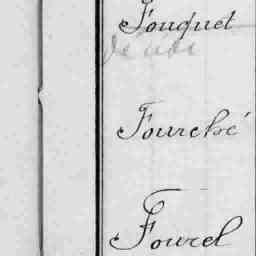 Fouquet
Fourché
Fourel